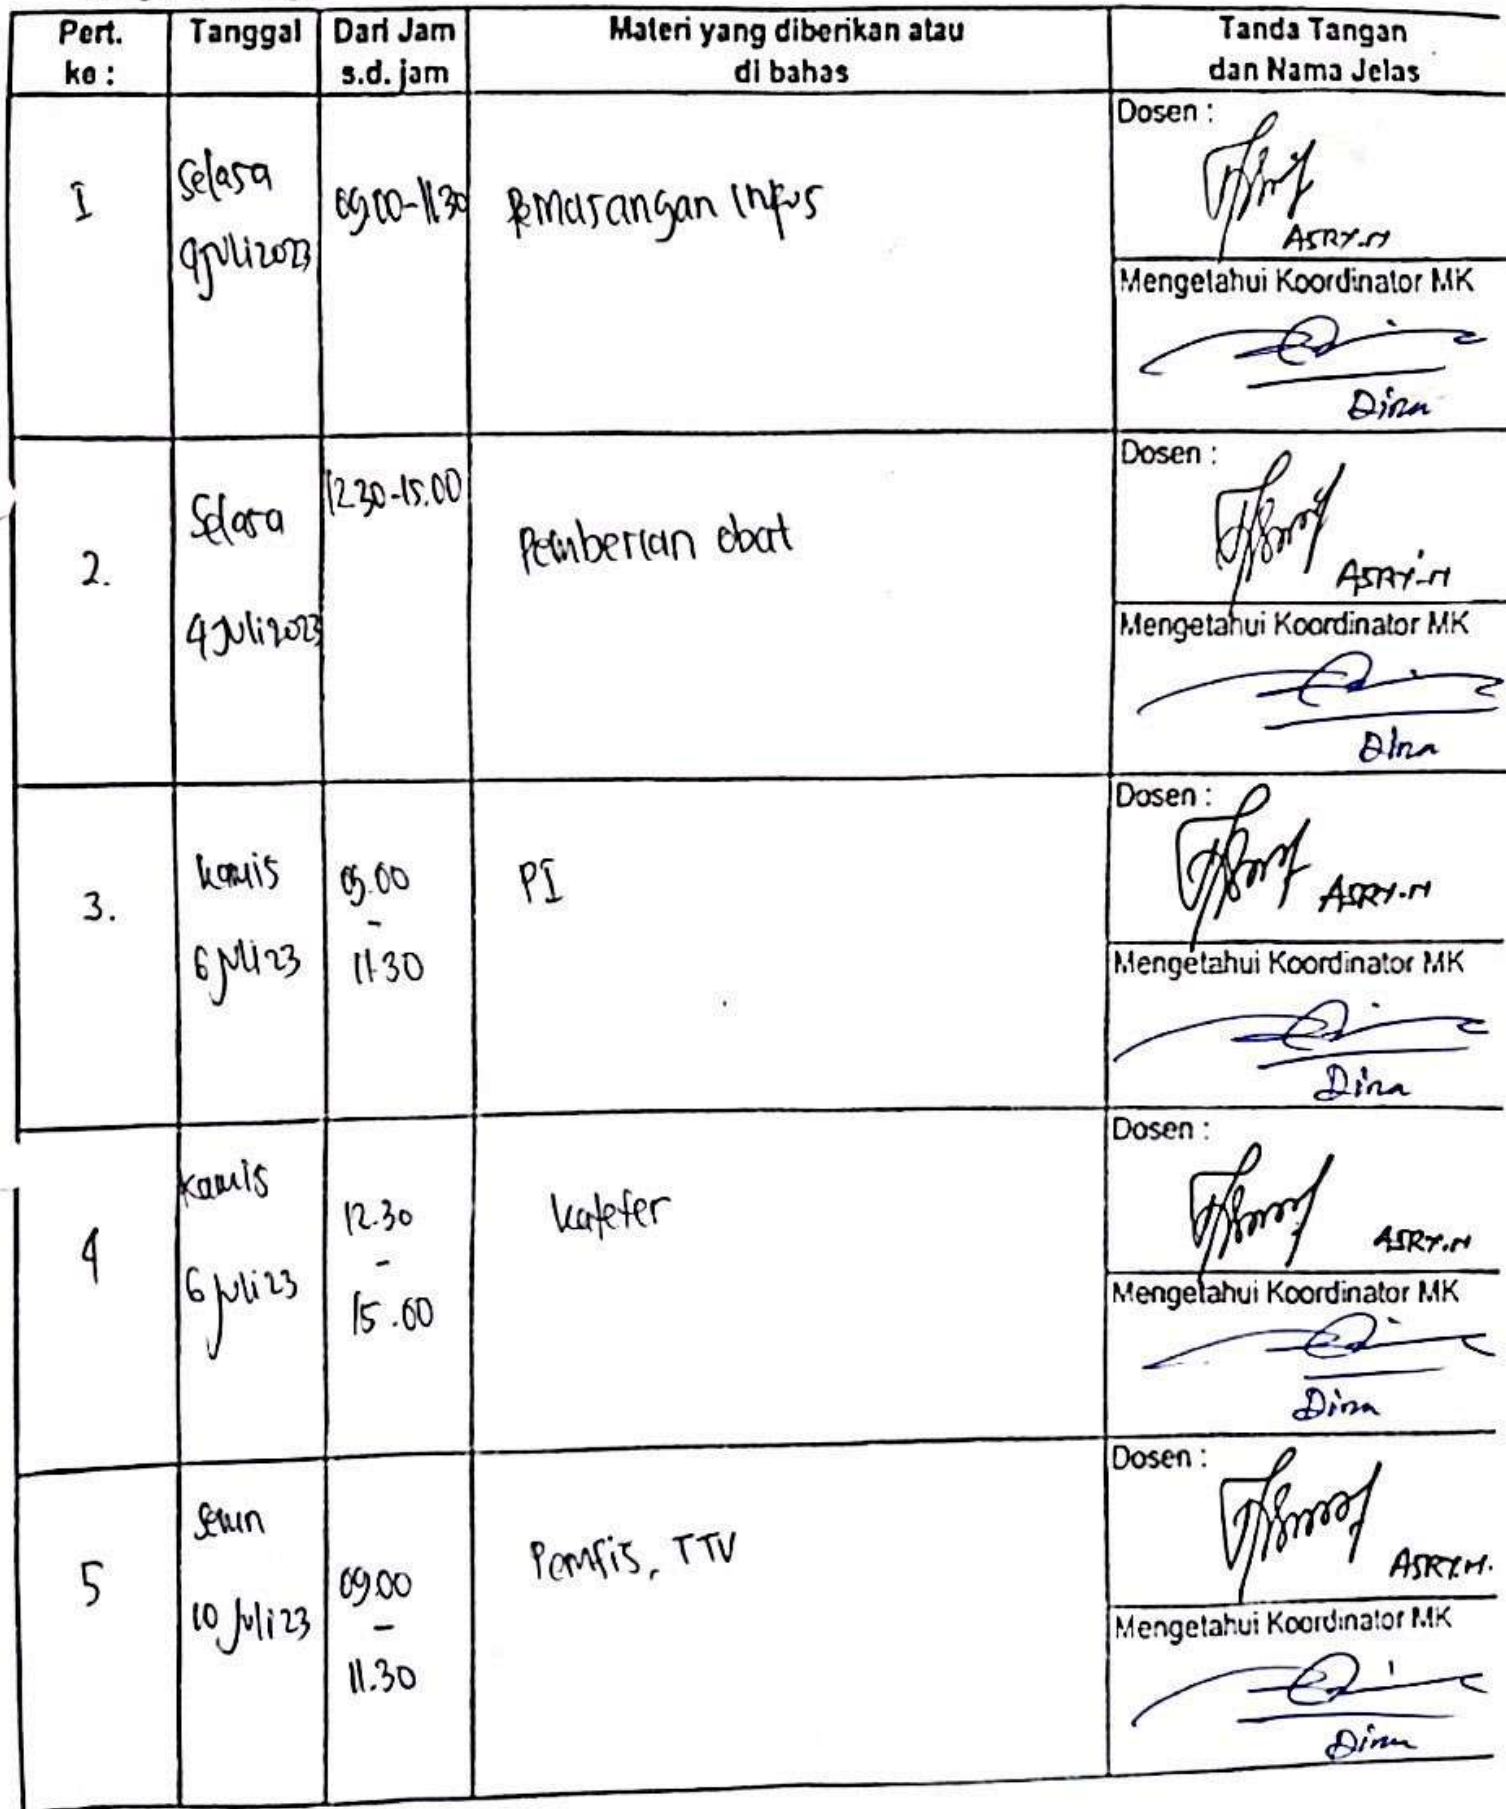 Pert. ke :
Tanggal
Dari Jam s.d. jam
Materi yang diberikan atau di bahas
Tanda Tangan dan Nama Jelas
I
Selasa
4 Juli 2023
09.00-11.30
Pemasangan Infus
Dosen :
ASRY.M
Mengetahui Koordinator MK
Dina
2.
Selasa
4 Juli 2023
12.30-15.00
Pemberian obat
Dosen :
ASRY.M
Mengetahui Koordinator MK
Dina
3.
kamis
6 Juli 23
09.00
-
11.30
PI
Dosen :
ASRY.M
Mengetahui Koordinator MK
Dina
4
Kamis
6 Juli 23
12.30
-
15.00
kateter
Dosen :
ASRY.M
Mengetahui Koordinator MK
Dina
5
Senin
10 Juli 23
09.00
-
11.30
Pemfis, TTV
Dosen :
ASRY.M.
Mengetahui Koordinator MK
Dina